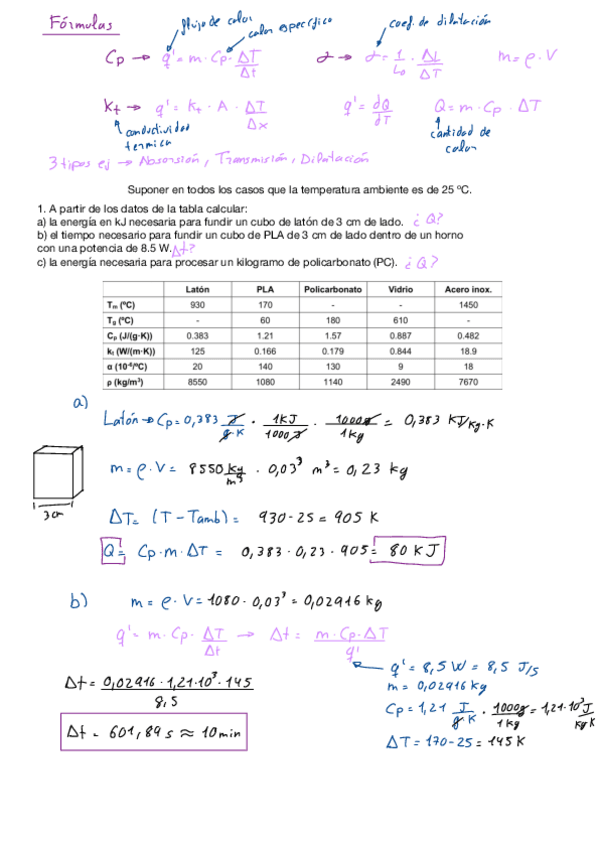 Fórmulas
flujo de calor
calor específico
coef. de dilatación
Cp → q' = m · Cp · ΔT/Δt
α → α = 1/L₀ · ΔL/ΔT
m = ρ · V
Kt → q' = kt · A · ΔT/Δx
q' = dQ/dT
Q = m · Cp · ΔT
conductividad
termica
cantidad de
calor
3 tipos ej → Absorsión, Transmisión, Dilatación
Suponer en todos los casos que la temperatura ambiente es de 25 ºC.
1. A partir de los datos de la tabla calcular:
a) la energía en kJ necesaria para fundir un cubo de latón de 3 cm de lado. ¿Q?
b) el tiempo necesario para fundir un cubo de PLA de 3 cm de lado dentro de un horno
con una potencia de 8.5 W. Δt?
c) la energía necesaria para procesar un kilogramo de policarbonato (PC). ¿Q?
Latón PLA Policarbonato Vidrio Acero inox.
Tm (ºC) 930 170 - - 1450
Tg (ºC) - 60 180 610 -
Cp (J/(g·K)) 0.383 1.21 1.57 0.887 0.482
kt (W/(m·K)) 125 0.166 0.179 0.844 18.9
α (10⁻⁶/ºC) 20 140 130 9 18
ρ (kg/m³) 8550 1080 1140 2490 7670
a)
Latón → Cp = 0,383 J/g·K · 1KJ/1000J · 1000g/1kg = 0,383 KJ/Kg·K
m = ρ · V = 8550 kg/m³ · 0,03³ m³ = 0,23 kg
3cm
ΔT = (T - Tamb) = 930 - 25 = 905 K
Q = Cp · m · ΔT = 0,383 · 0,23 · 905 = 80 KJ
b) m = ρ · V = 1080 · 0,03³ = 0,02916 kg
q' = m · Cp · ΔT/Δt → Δt = m · Cp · ΔT/q'
q' = 8,5 W = 8,5 J/s
m = 0,02916 kg
Δt = 0,02916 · 1,21·10³ · 145/8,5
Cp = 1,21 J/g·K · 1000g/1kg = 1,21·10³ J/kg·K
Δt = 601,89 s ≈ 10 min
ΔT = 170 - 25 = 145 K